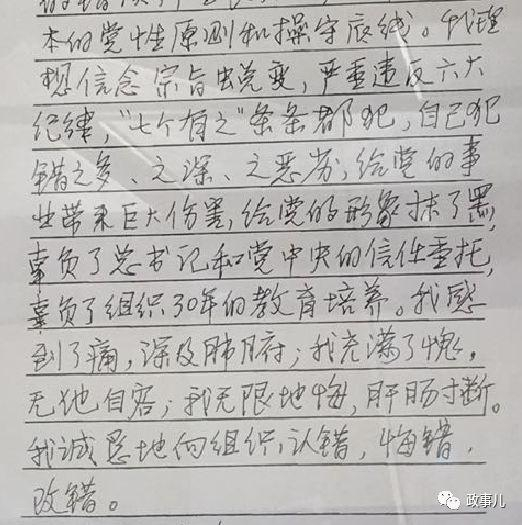 本的党性原则和操守底线。我理
想信念宗旨出蜕变，严重违反六大
纪律，“七个有之”条条都犯，自己犯
错之多、之深、之恶劣；给党的事
业带来巨大伤害，给党的形象抹了黑，
辜负了总书记和党中央的信任重托，
辜负了组织30年的教育培养。我感
到了痛，深及肺腑；我充满了愧，
无地自容；我无限地悔，肝肠寸断。
我诚恳地向组织认错，悔错，
改错。
政事儿